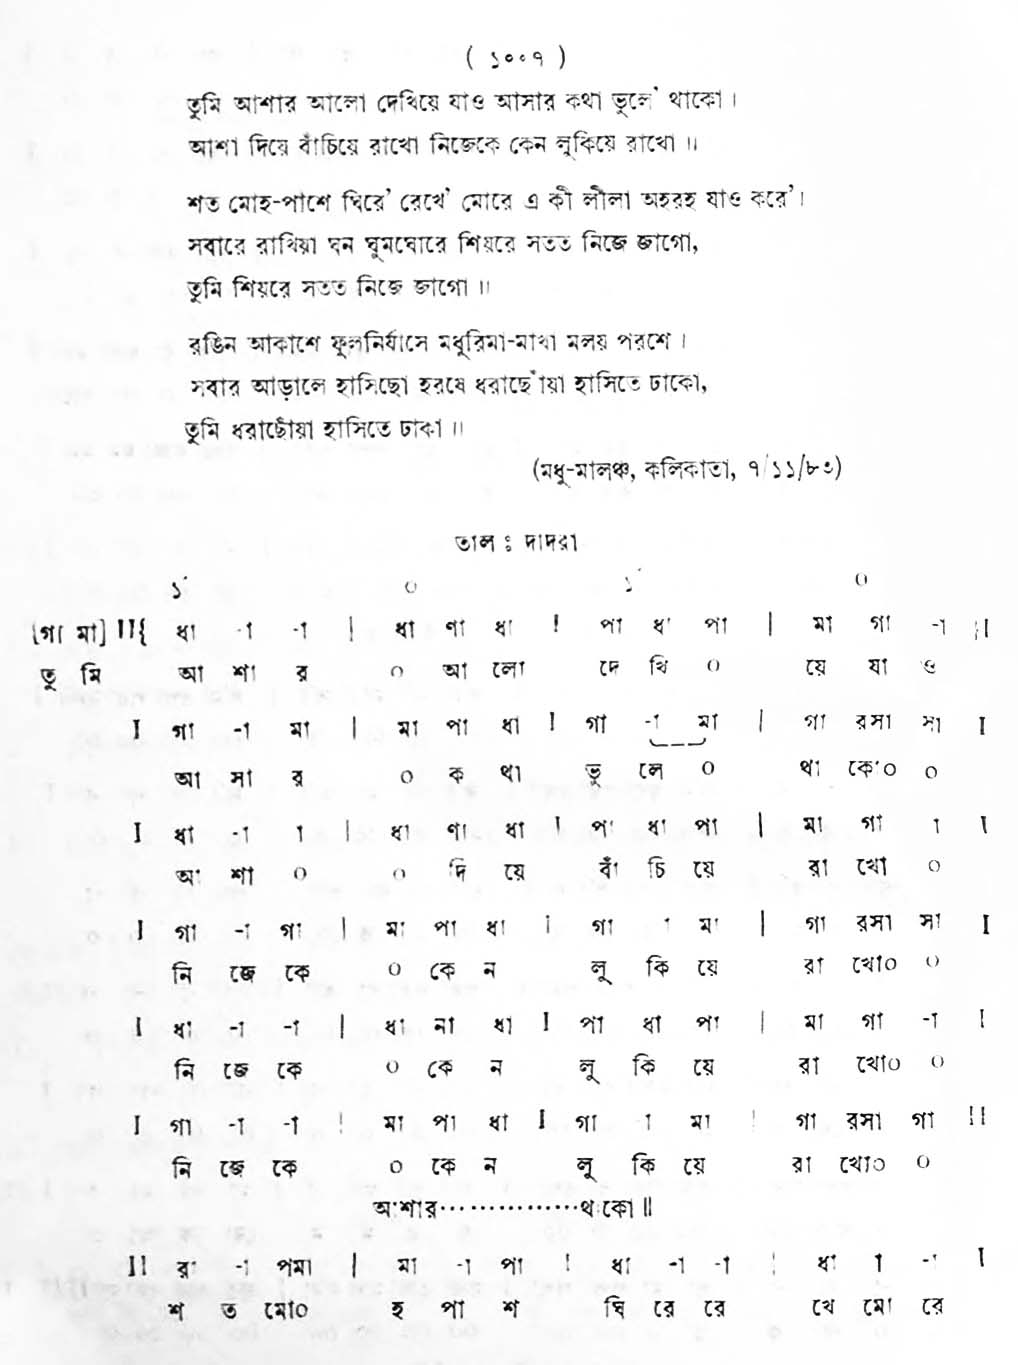 ( ১০০৭ )
তুমি আশার আলো দেখিয়ে যাও আসার কথা ভুলে' থাকো ।
আশা দিয়ে বাঁচিয়ে রাখো নিজেকে কেন লুকিয়ে রাখো ॥
শত মোহ-পাশে ঘিরে' রেখে' মোরে এ কী লীলা অহরহ যাও করে'।
সবারে রাখিয়া ঘন ঘুমঘোরে শিয়রে সতত নিজে জাগো,
তুমি শিয়রে সতত নিজে জাগো ॥
রঙিন আকাশে ফুলনির্যাসে মধুরিমা-মাখা মলয় পরশে ।
সবার আড়ালে হাসিছো হরষে ধরাছোঁয়া হাসিতে ঢাকো,
তুমি ধরাছোঁয়া হাসিতে ঢাকা ॥
(মধু-মালঞ্চ, কলিকাতা, ৭/১১/৮৩)
তাল ঃ দাদরা
১´ ০ ১´ ০
[গা মা] II{ ধা -া -া | ধা ণা ধা I পা ধা পা | মা গা -া }I
তু মি আ শা র ০ আ লো দে খি ০ য়ে যা ও
I গা -া মা | মা পা ধা I গা -া মা | গা রসা সা I
আ সা র ০ ক থা ভু লে ০ থা কো০ ০
I ধা -া া | ধা ণা ধা I পা ধা পা | মা গা া I
আ শা ০ ০ দি য়ে বাঁ চি য়ে রা খো ০
I গা -া গা | মা পা ধা I গা া মা | গা রসা সা I
নি জে কে ০ কে ন লু কি য়ে রা খো০ ০
I ধা -া -া | ধা না ধা I পা ধা পা | মা গা -া I
নি জে কে ০ কে ন লু কি য়ে রা খো০ ০
I গা -া -া | মা পা ধা I গা া মা | গা রসা গা II
নি জে কে ০ কে ন লু কি য়ে রা খো০ ০
আশার···············থাকো ॥
II রা -া পমা | মা -া পা I ধা -া -া | ধা া -া I
শ ত মো০ হ পা শ ঘি রে রে খে মো রে